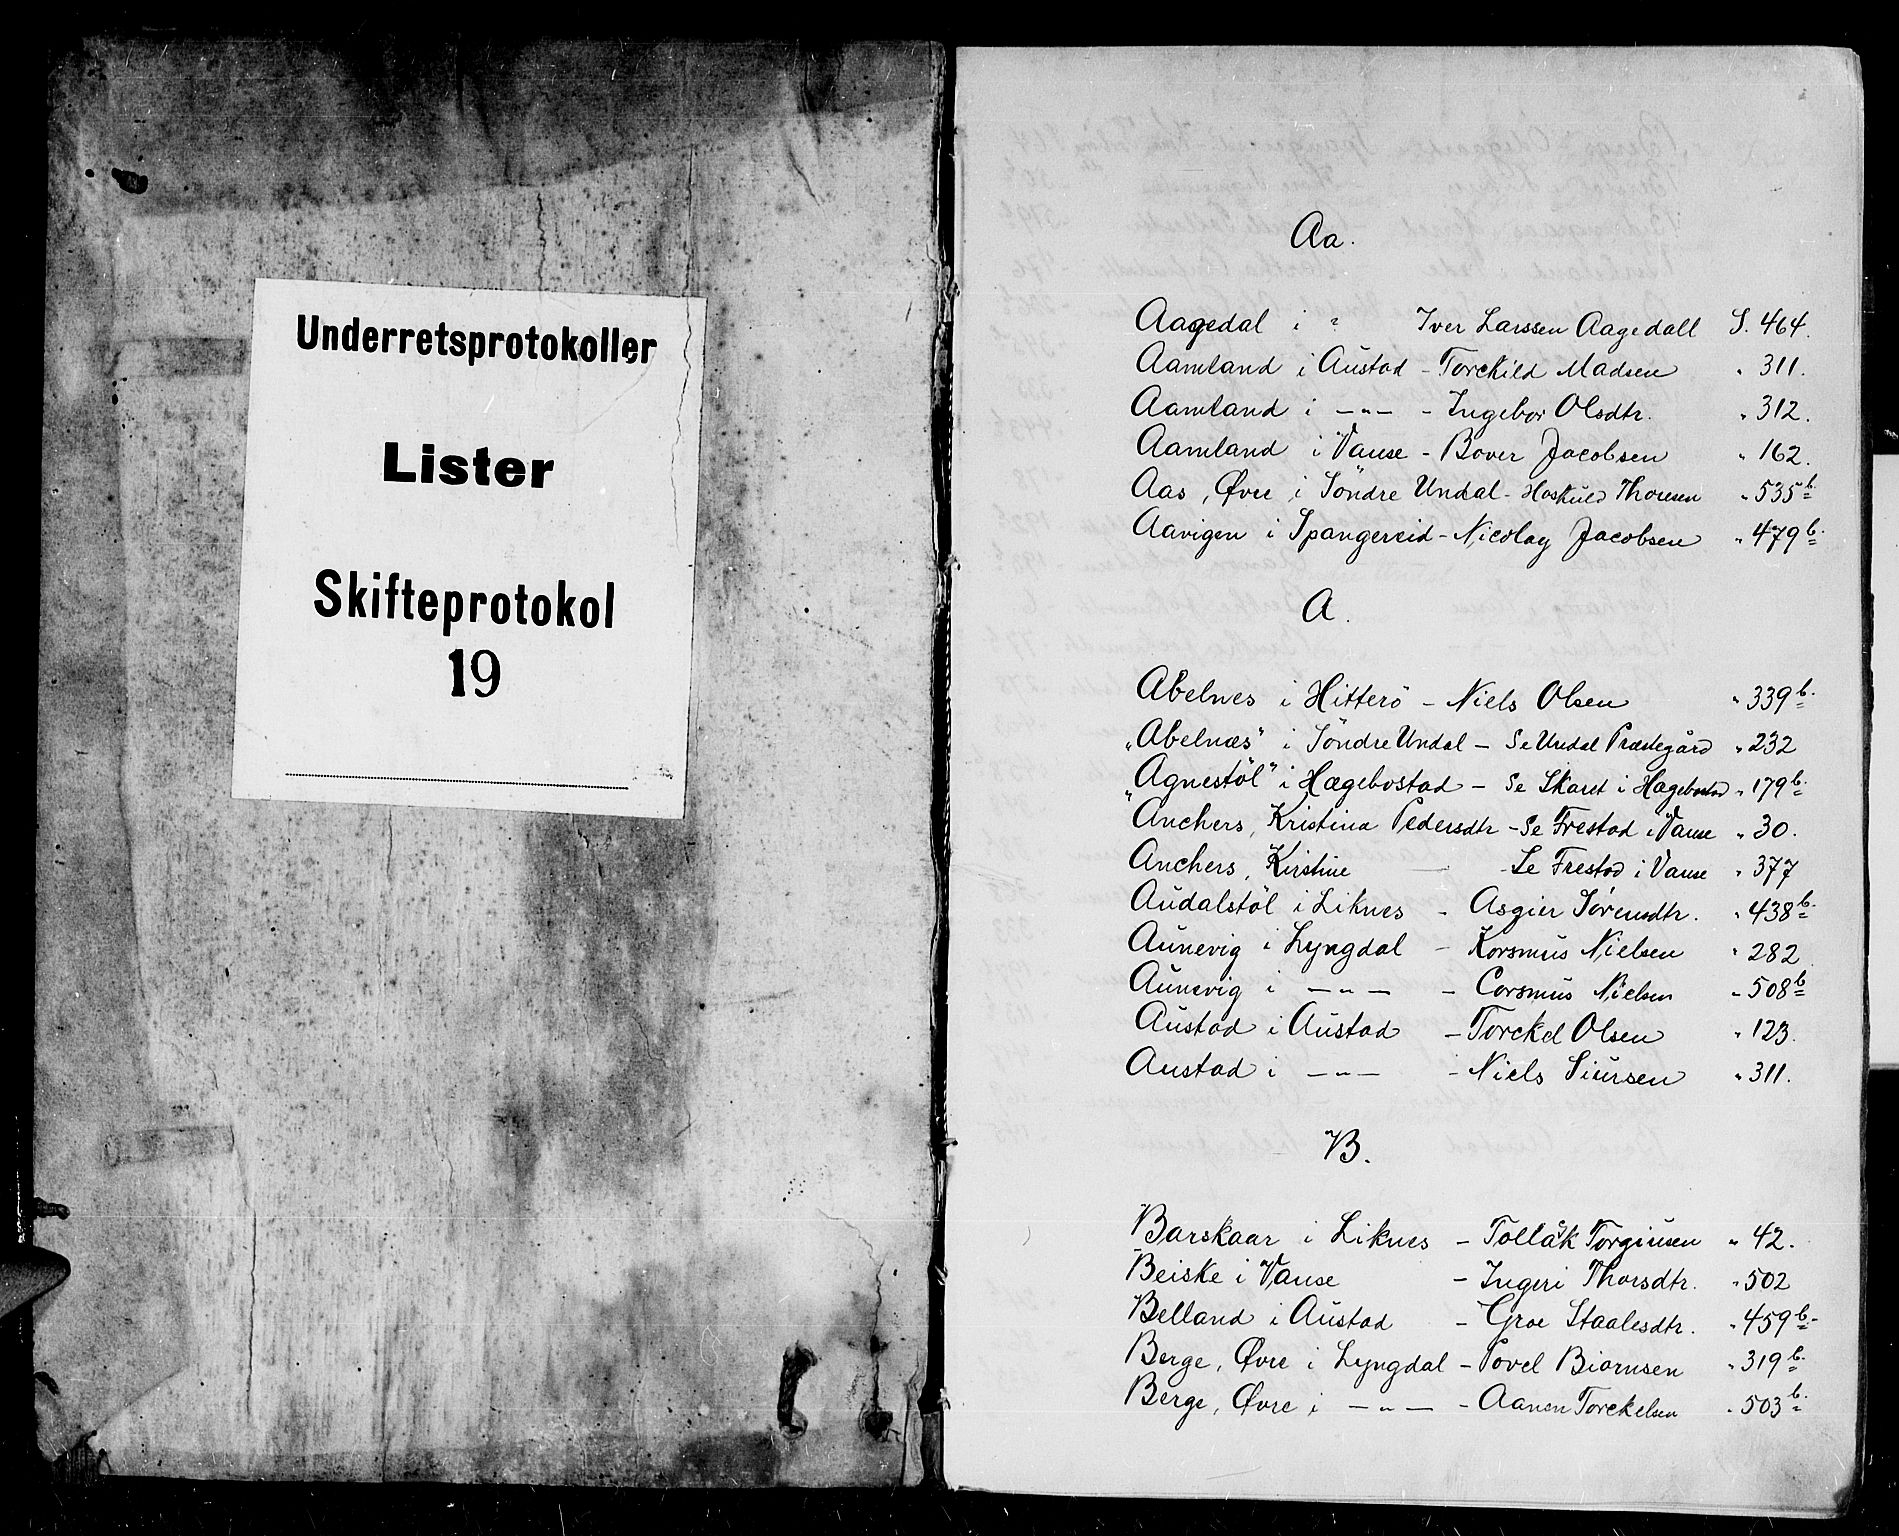 Underretsprotokoller
Lister
Skifteprotokol
19
Aa.
Aagedal i " Iver Larssen Aagedall S. 464.
Aamland i Austad - Torckild Madsen " 311.
Aamland i -"- - Ingebor Olsdtr. " 312.
Aamland i Vanse - Bover Jacobsen " 162.
Aas, Øvre i Söndre Undal - Hoskuld Thoresen " 535b
Aavigen i Spangereid - Nicolay Jacobsen " 479b.
A.
Abelnes i Hitterö - Niels Olsen " 339b.
"Abelnæs" i Söndre Undal - Se Undal Præstegård " 232
"Agnestöl" i Hægebostad - Se Skaret i Hægebostad " 179b.
Anchers, Kristina Pedersdtr - Se Frestad i Vanse " 30.
Anchers, Kirstine - Se Frestad i Vanse " 377
Audalstöl i Liknes - Asgier Sörensdtr. " 438b.
Aunevig i Lyngdal - Korsmus Nielsen " 282
Aunevig i -"- - Corsmus Nielsen " 508b
Austad i Austad - Torckel Olsen " 123.
Austad i -"- - Niels Siursen " 311.
B.
Barskaar i Liknes - Tollak Torgiusen " 42.
Beiske i Vanse - Ingeri Thorsdtr. " 502
Belland i Austad - Groe Staalesdtr. " 459b.
Berge, Øvre i Lyngdal - Povel Biørnsen " 319b.
Berge, Øvre i -"- - Aanen Torckelsen " 503b.